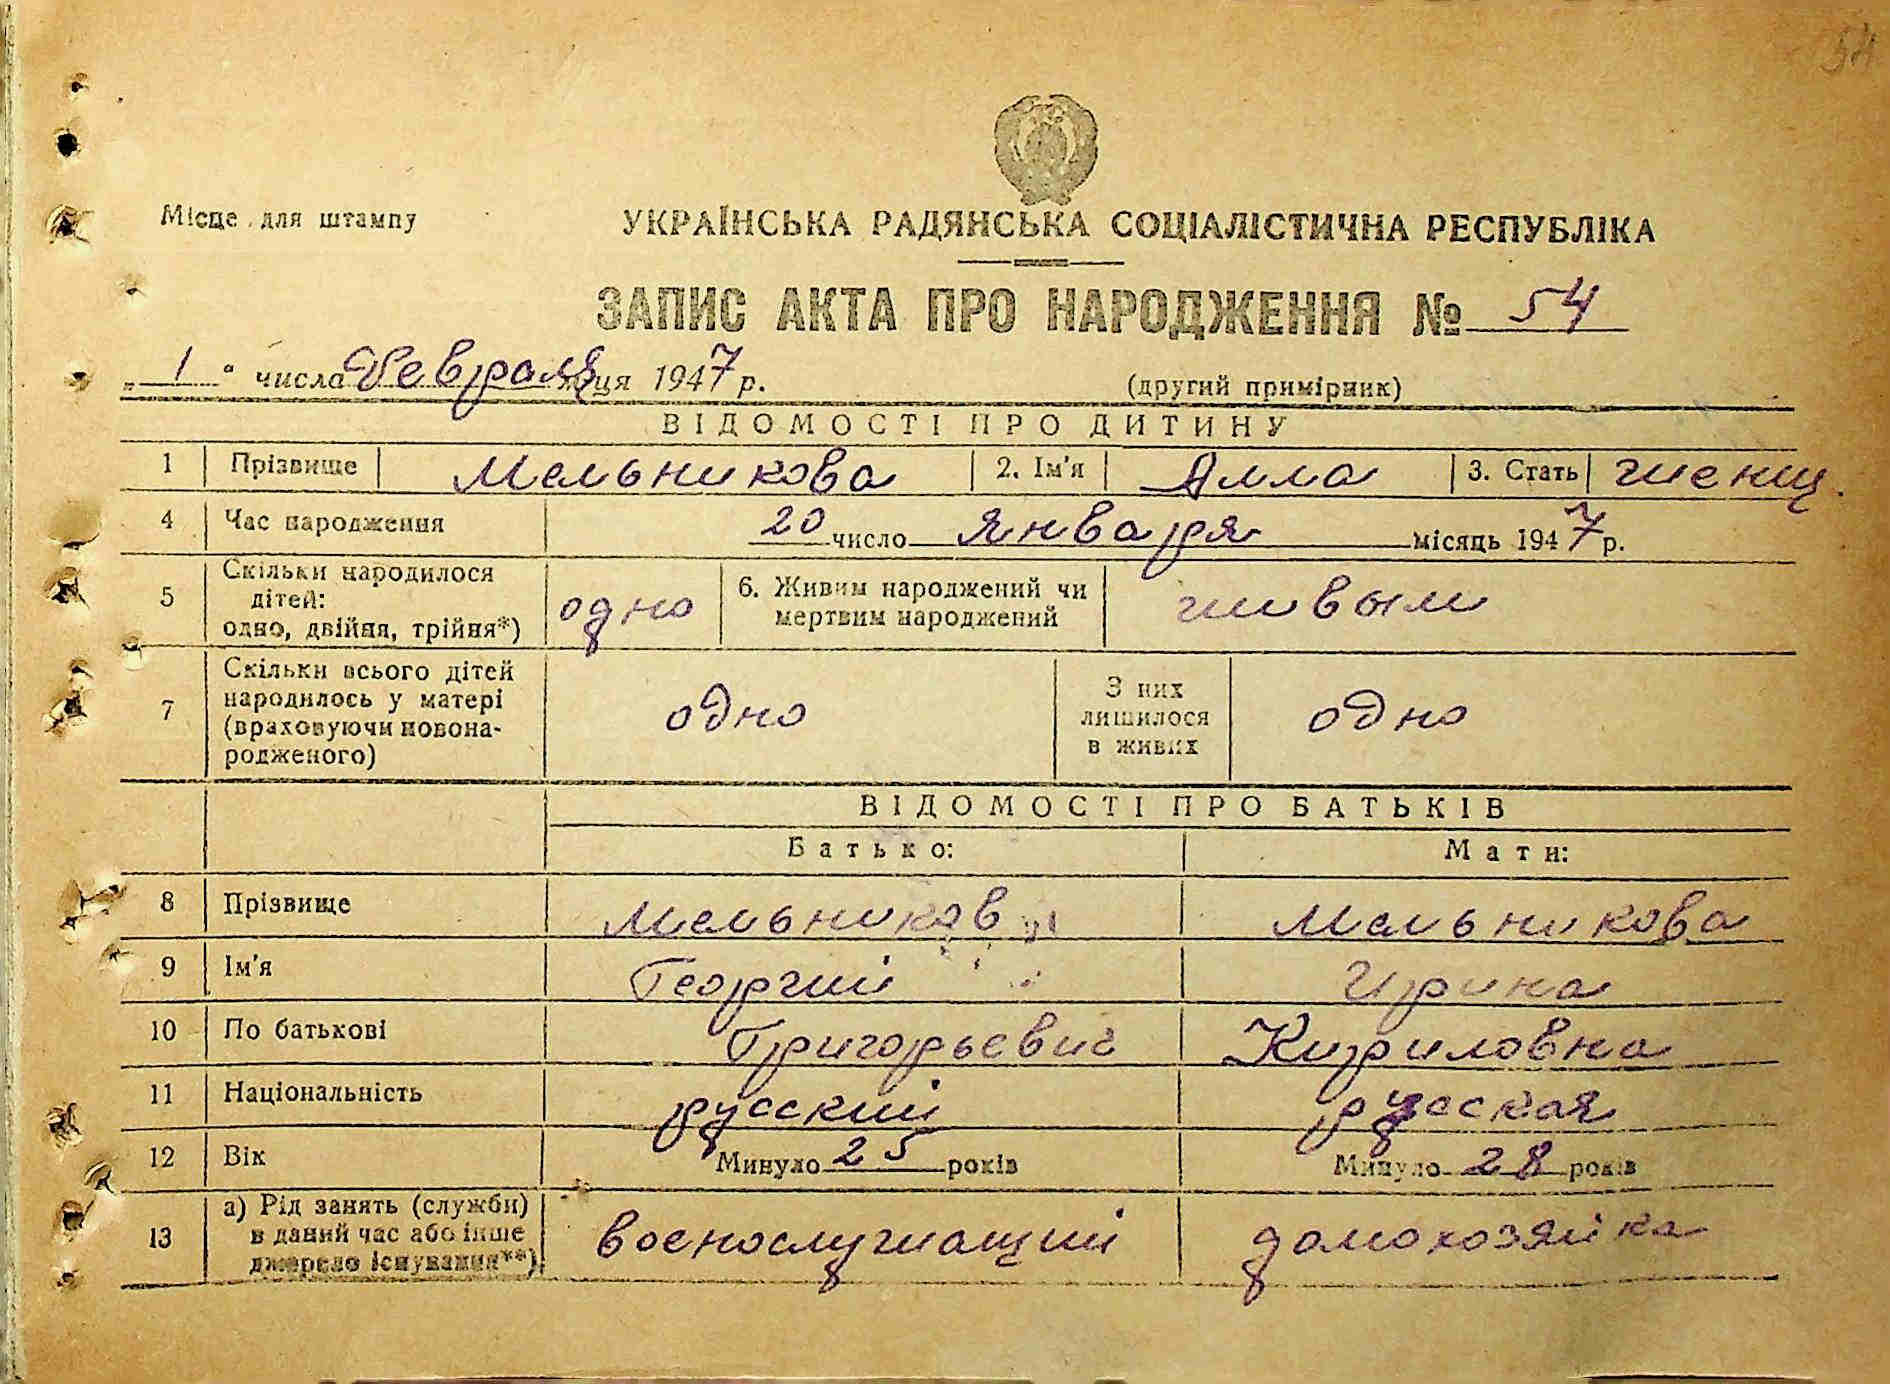 54
Місце для штампу
УКРАЇНСЬКА РАДЯНСЬКА СОЦІАЛІСТИЧНА РЕСПУБЛІКА
ЗАПИС АКТА ПРО НАРОДЖЕННЯ № 54
„ 1 “ числа Февраля м-ця 1947 р.
(другий примірник)
ВІДОМОСТІ ПРО ДИТИНУ
1 Прізвище Мельникова 2. Ім'я Алла 3. Стать женщ.
4 Час народження 20 число Января місяць 1947 р.
5 Скільки народилося дітей: одно, двійня, трійня*) одно 6. Живим народжений чи мертвим народжений живым
7 Скільки всього дітей народилось у матері (враховуючи новона-родженого) одно З них лишилося в живих одно
ВІДОМОСТІ ПРО БАТЬКІВ
Батько: Мати:
8 Прізвище Мельников Мельникова
9 Ім'я Георгий Ирина
10 По батькові Григорьевич Кириловна
11 Національність русский русская
12 Вік Минуло 25 років Минуло 28 років
13 а) Рід занять (служби) в даний час або інше джерело існування**) военослужащий домохозяйка